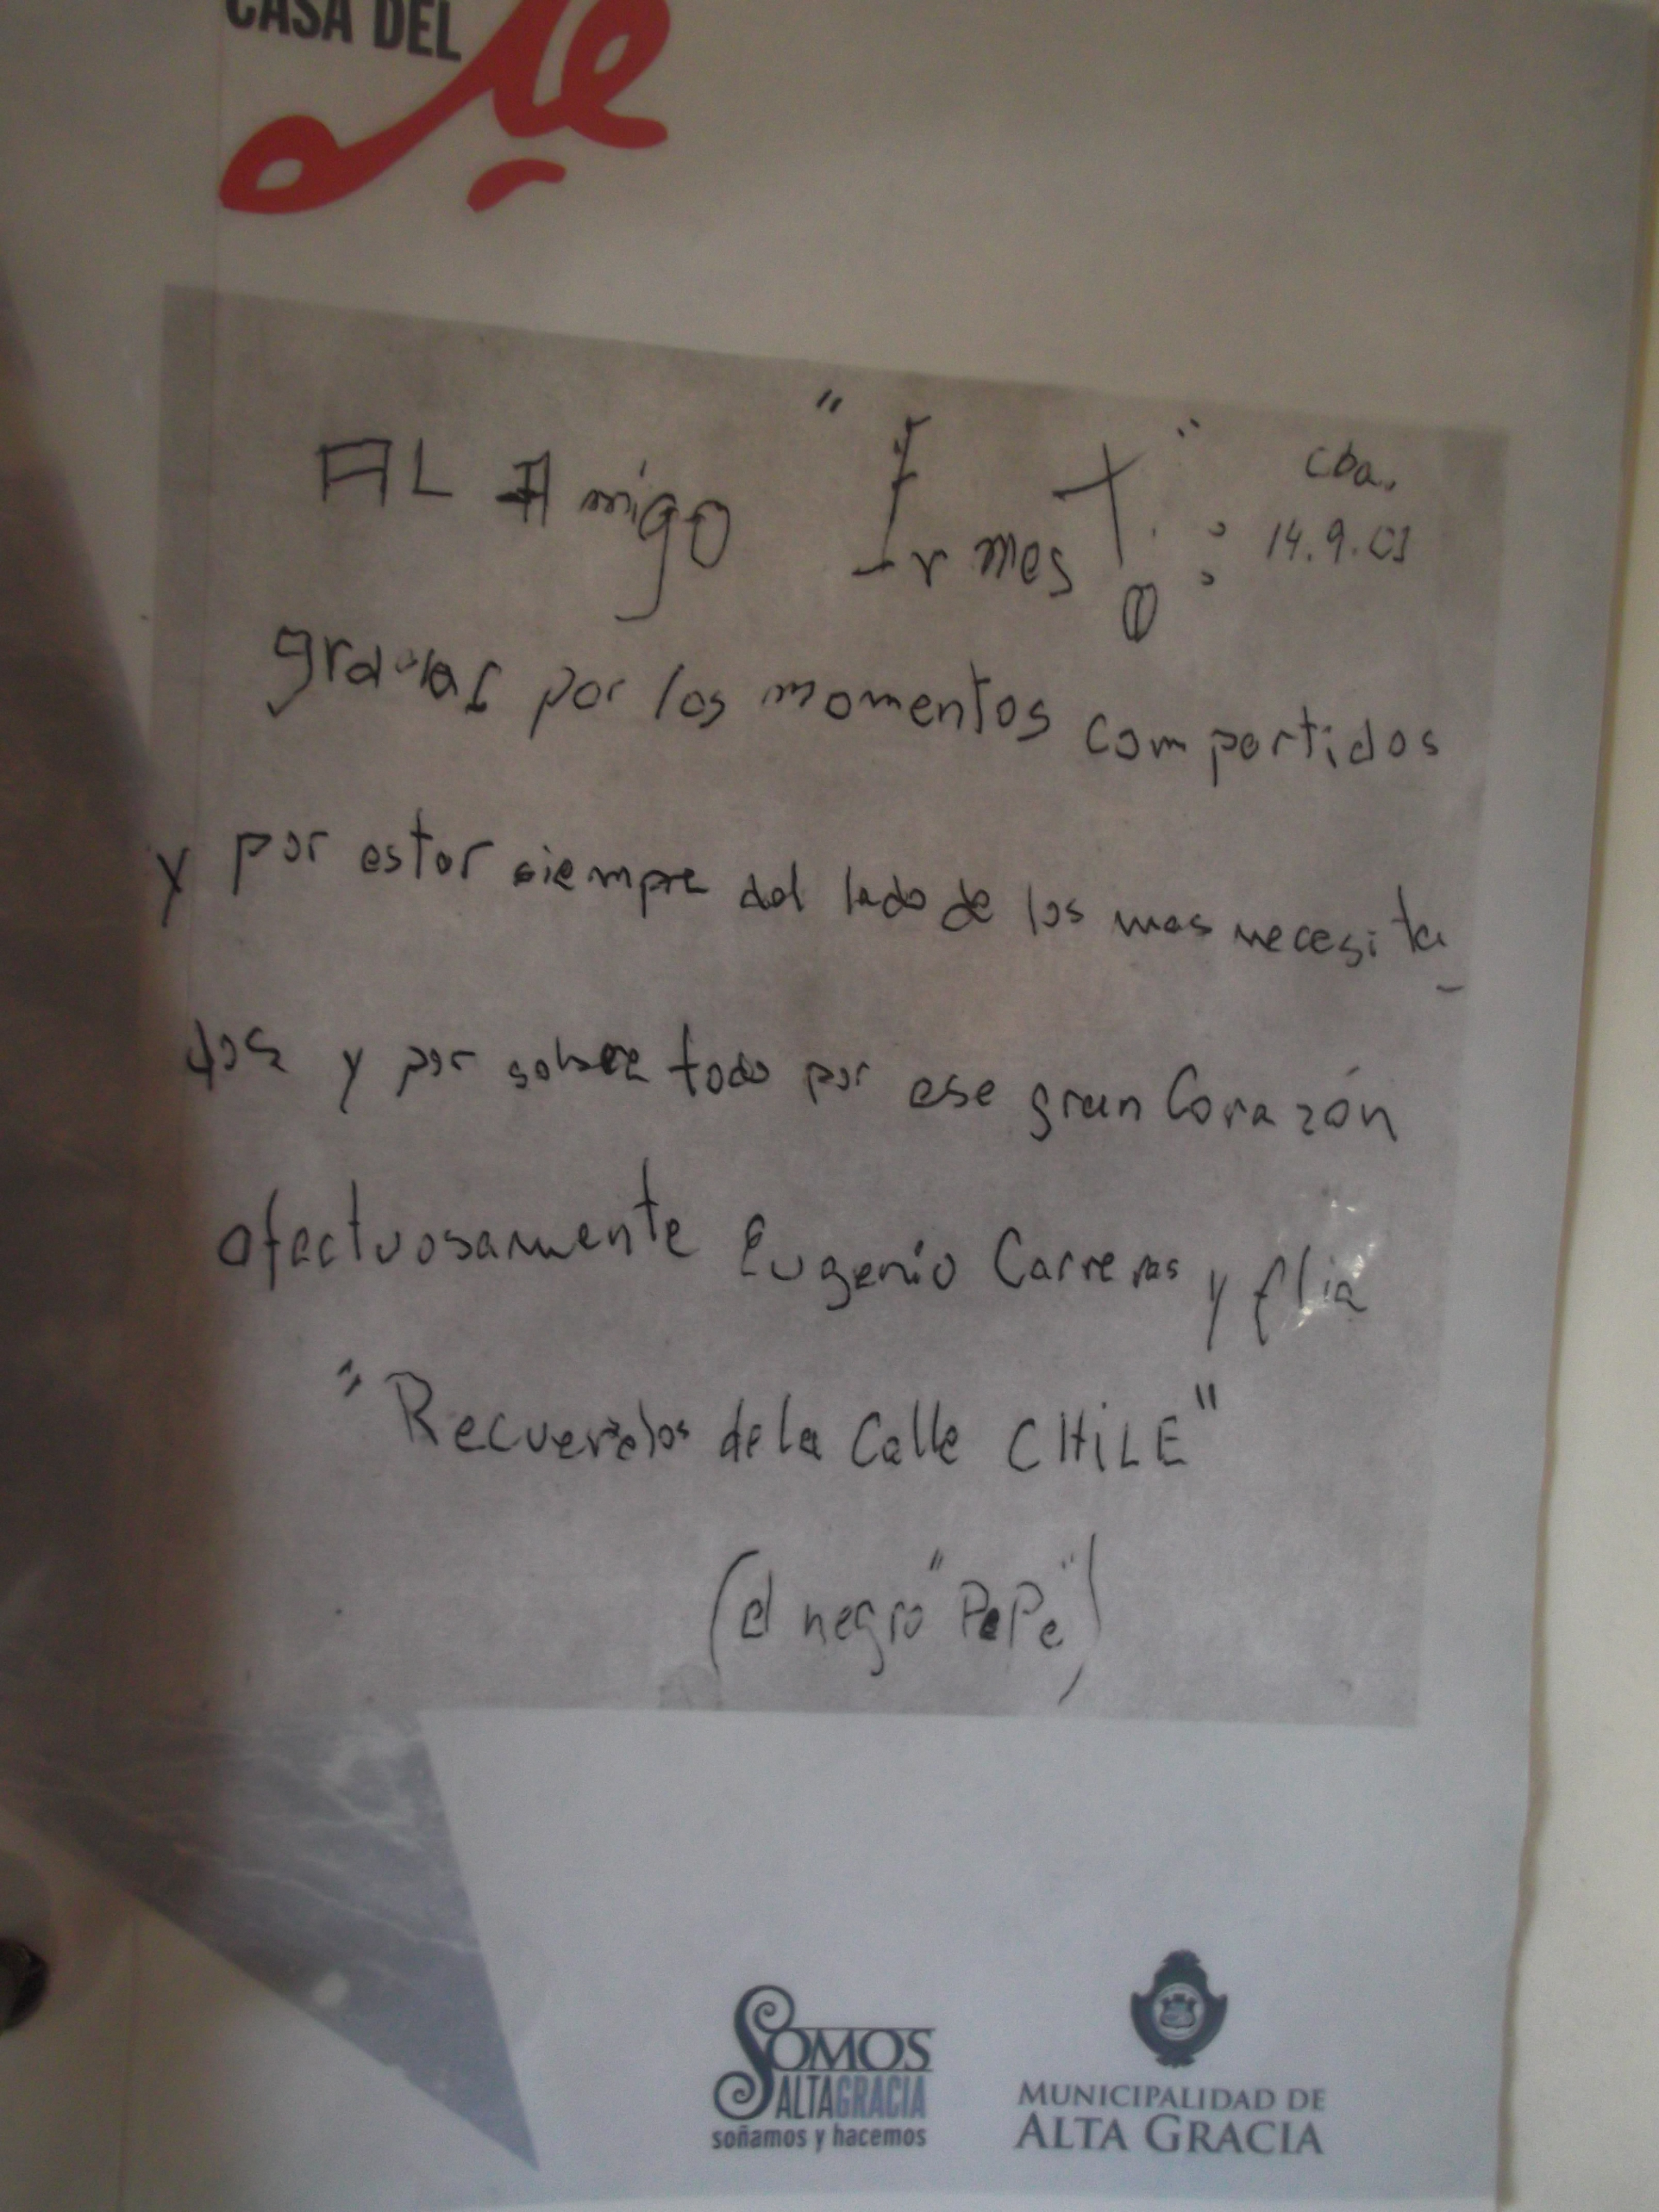 CASA DEL
Che
AL Amigo "Ernesto": Cba.
14.9.01
gracias por los momentos compartidos
y por estar siempre del lado de los mas necesita-
dos y por sobre todo por ese gran Corazón
afectuosamente Eugenio Carreras y flia
"Recuerdos de la Calle CHILE"
(el negro "PePe")
SOMOS
ALTAGRACIA
soñamos y hacemos
MUNICIPALIDAD DE
ALTA GRACIA